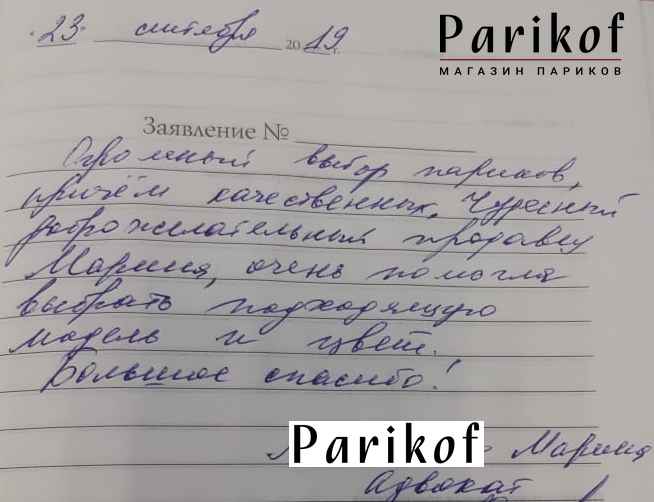 Parikof
МАГАЗИН ПАРИКОВ
23 сентября 2019 г.
Заявление №
Огромный выбор париков,
причём качественных. Чудесный
доброжелательный продавец
Марина, очень помогла
выбрать подходящую
модель и цвет.
Большое спасибо!
Parikof Марина
Адвокат